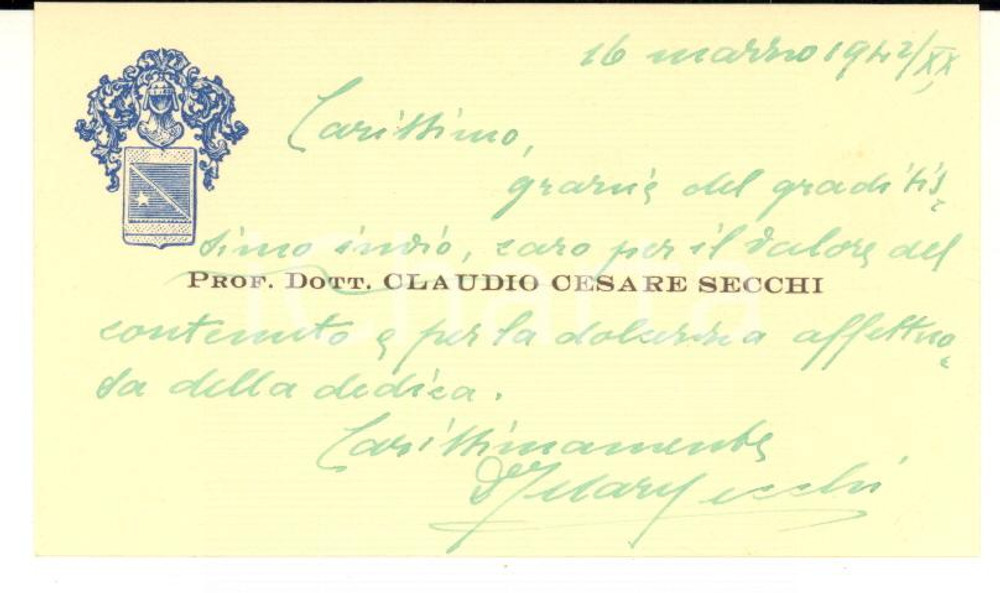 16 marzo 1942/XX,
Carissimo,
grazie del graditis=
simo invio, caro per il valore del
PROF. DOTT. CLAUDIO CESARE SECCHI
contenuto e per la dolcezza affettuo=
sa della dedica.
Carissimamente
Secchi